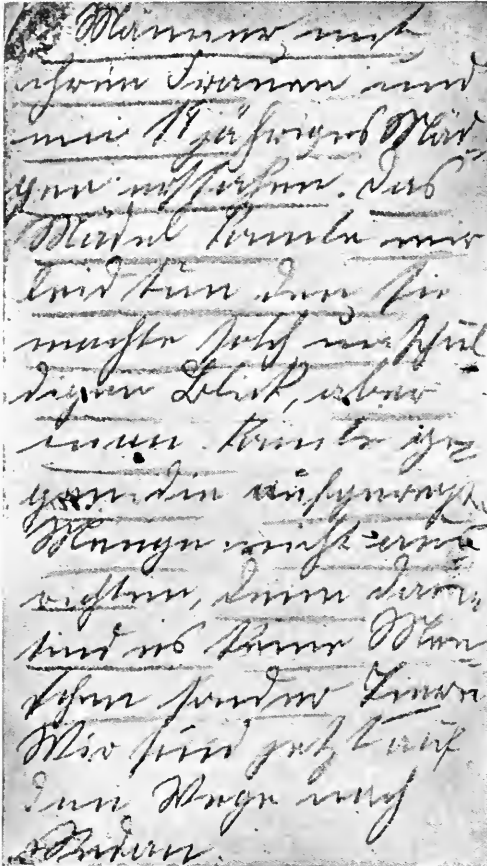 Männer mit
ihren Frauen und
ein 18 jähriges Mäd-
gen erstachen. Das
Mädel konnte mir
leid tun den sie
machte solch unschul
digen Blick, aber
man konnte ge-
gen die aufgeregte
Menge nicht aus
richten, denn dann
sind es keine Men
schen sonder Tiere
Wir sind jetzt auf
dem Wege nach
Sedan.